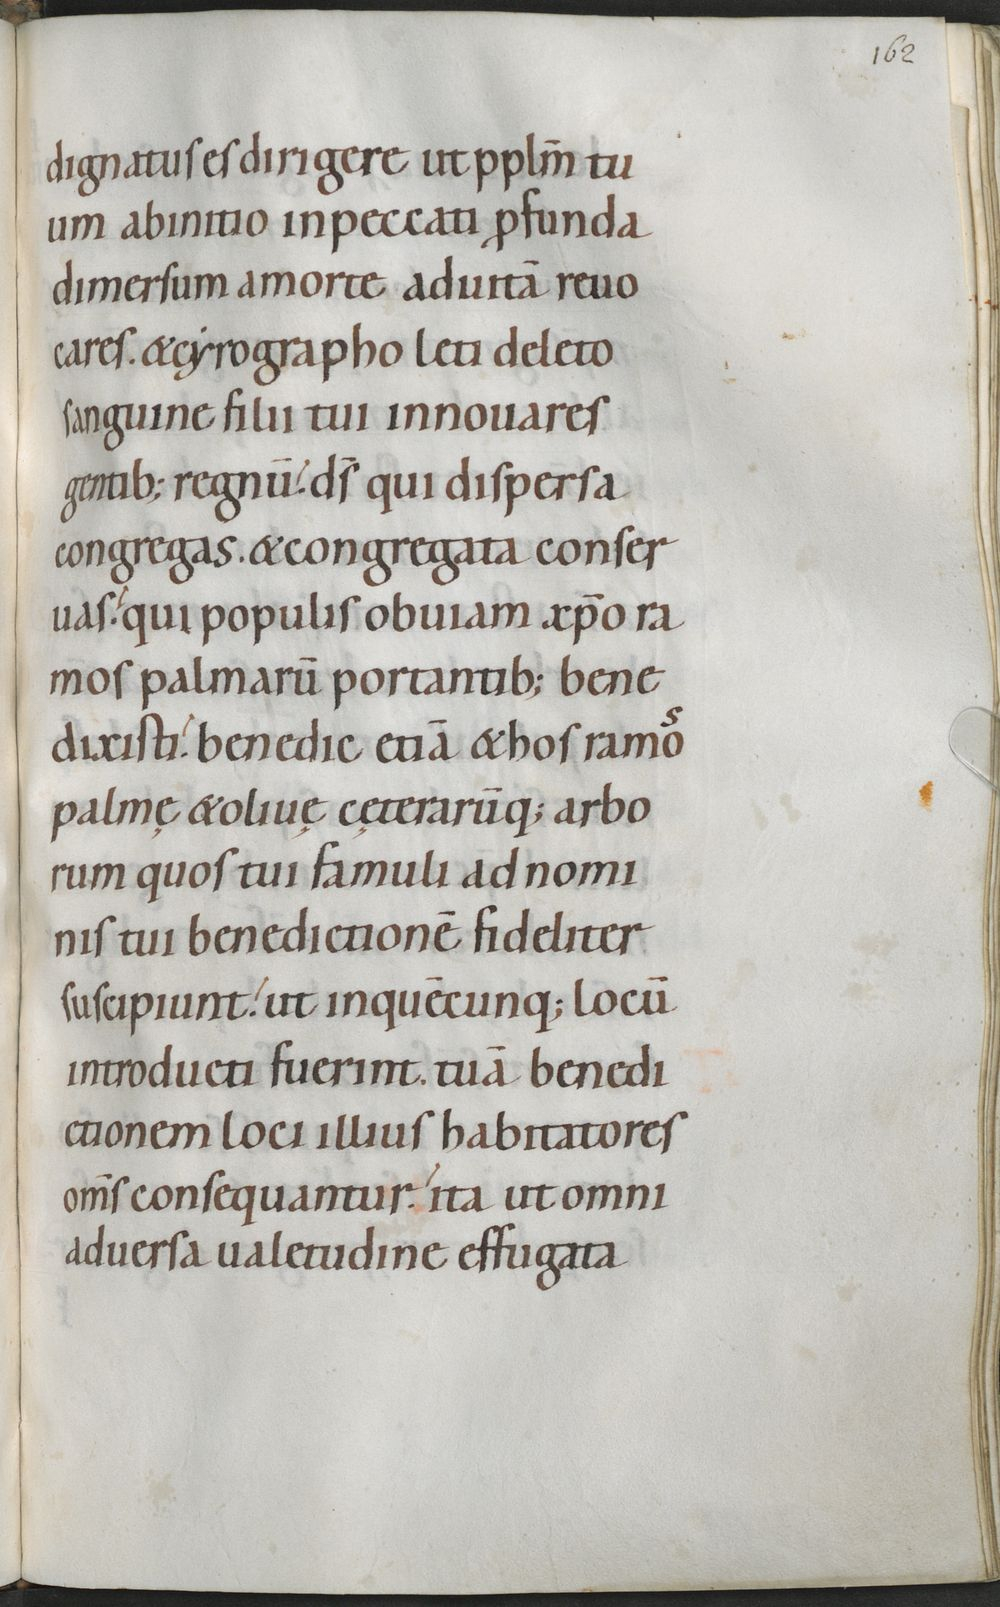 162
dignatus es dirigere ut pplm̄ tu
um abinitio inpeccati ꝓfunda
dimersum amorte aduitā reuo
cares. &cẏrographo leti deleto
sanguine filii tui innouares
gentib; regnū. ds̄ qui dispersa
congregas. &congregata conser
uas. qui populis obuiam xp̄o ra
mos palmarū portantib; bene
dixisti. benedic etiā &hos ramos
palmę &oliuę cęterarūq; arbo
rum quos tui famuli ad nomi
nis tui benedictionē fideliter
suscipiunt. ut inquēcunq; locū
introducti fuerint. tuā benedi
ctionem loci illius habitatores
om̄s consequantur. ita ut omni
aduersa ualetudine effugata